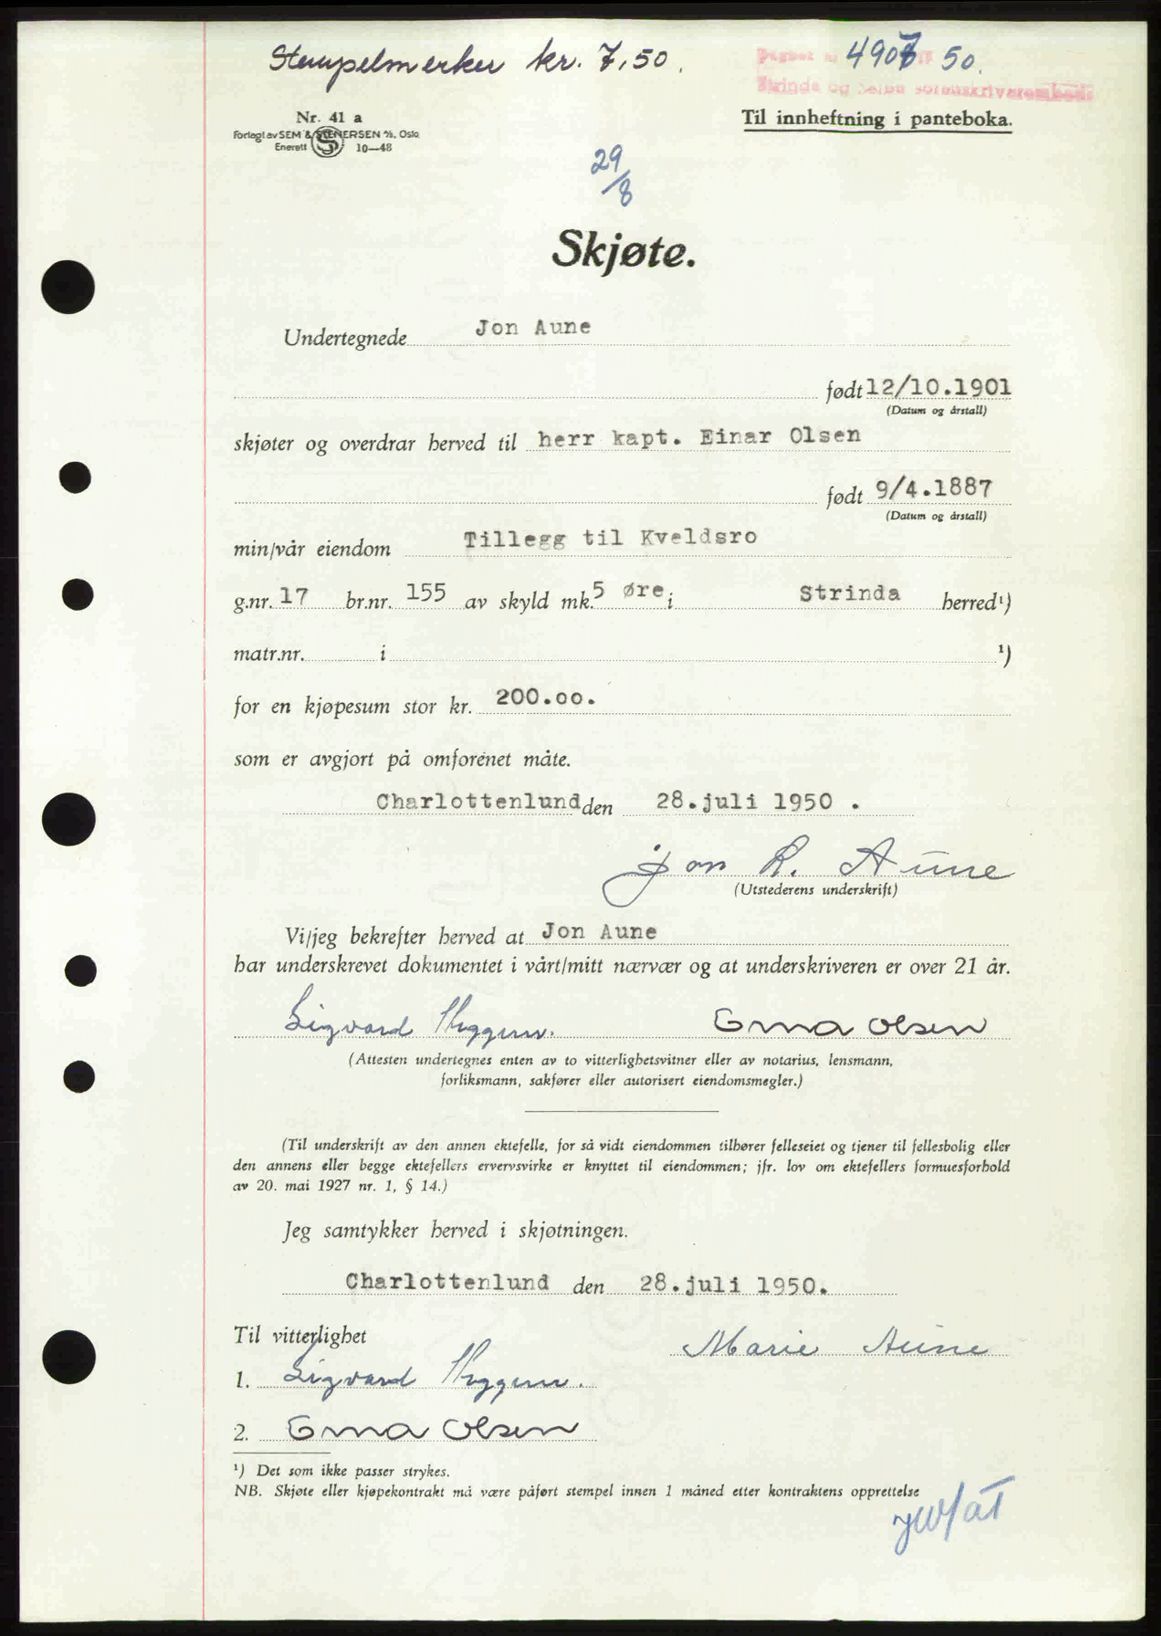 Stempelmerker kr. 7,50.
4907 50.
Strinda og Selbu sorenskriverembede
Nr. 41 a
Forlagt av SEM & STENERSEN A/S, Oslo
Enerett 10—48
Til innheftning i panteboka.
29/8
Skjøte.
Undertegnede Jon Aune
født 12/10.1901
(Datum og årstall)
skjøter og overdrar herved til herr kapt. Einar Olsen
født 9/4.1887
(Datum og årstall)
min/vår eiendom Tillegg til Kveldsro
g.nr. 17 br.nr. 155 av skyld mk. 5 øre i Strinda herred¹)
matr.nr. i ¹)
for en kjøpesum stor kr. 200.oo.
som er avgjort på omforenet måte.
Charlottenlund den 28.juli 1950 .
Jon R. Aune
(Utstederens underskrift)
Vi/jeg bekrefter herved at Jon Aune
har underskrevet dokumentet i vårt/mitt nærvær og at underskriveren er over 21 år.
Sigvard Erna Olsen
(Attesten undertegnes enten av to vitterlighetsvitner eller av notarius, lensmann,
forliksmann, sakfører eller autorisert eiendomsmegler.)
(Til underskrift av den annen ektefelle, for så vidt eiendommen tilhører felleseiet og tjener til fellesbolig eller
den annens eller begge ektefellers ervervsvirke er knyttet til eiendommen; jfr. lov om ektefellers formuesforhold
av 20. mai 1927 nr. 1, § 14.)
Jeg samtykker herved i skjøtningen.
Charlottenlund den 28.juli 1950.
Til vitterlighet
Marie Aune
1. Sigvard
2. Erna Olsen
¹) Det som ikke passer strykes.
NB. Skjøte eller kjøpekontrakt må være påført stempel innen 1 måned etter kontraktens opprettelse